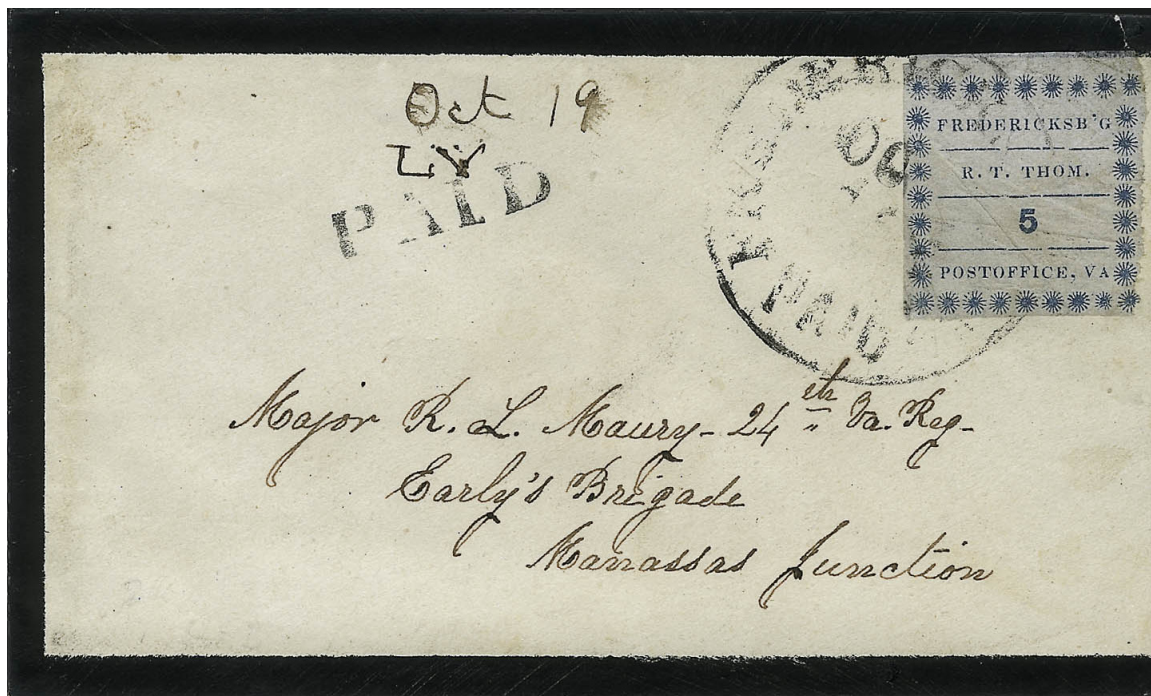 Oct 19
PAID
OC
PAID
FREDERICKSB'G
R. T. THOM.
5
POSTOFFICE, VA
Major R. L. Maury - 24th Va. Reg -
Early's Brigade
Manassas Junction